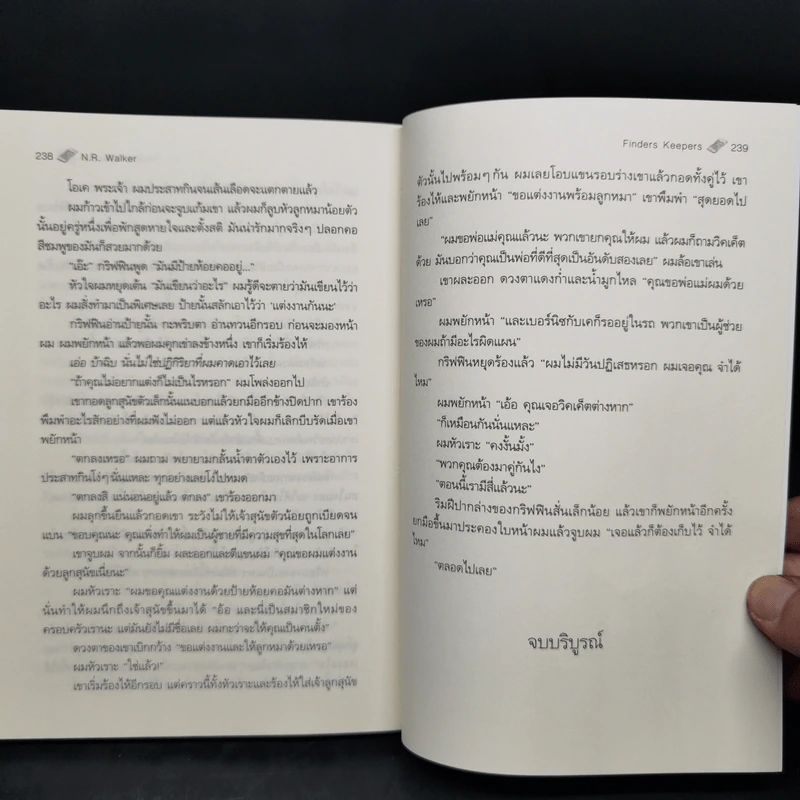 238 N.R. Walker
โอเค พระเจ้า ผมประสาทกินจนเส้นเลือดจะแตกตายแล้ว
ผมก้าวเข้าไปใกล้ก่อนจะจูบแก้มเขา แล้วผมก็ลูบหัวลูกหมาน้อยตัว
นั้นอยู่ครู่หนึ่งเพื่อพักสูดหายใจและตั้งสติ มันน่ารักมากจริงๆ ปลอกคอ
สีชมพูของมันก็สวยมากด้วย
"เอ๊ะ" กริฟฟินพูด "มันมีป้ายห้อยคออยู่..."
หัวใจผมหยุดเต้น "มันเขียนว่าอะไร" ผมรู้ดีจะตายว่ามันเขียนไว้ว่า
อะไร ผมสั่งทำมาเป็นพิเศษเลย ป้ายนั้นสลักเอาไว้ว่า 'แต่งงานกันนะ'
กริฟฟินอ่านป้ายนั้น กะพริบตา อ่านทวนอีกรอบ ก่อนจะมองหน้า
ผม ผมพยักหน้า แล้วพอผมคุกเข่าลงข้างหนึ่ง เขาก็เริ่มร้องไห้
เอ่อ บ้าฉิบ นั่นไม่ใช่ปฏิกิริยาที่ผมคาดเอาไว้เลย
"ถ้าคุณไม่อยากแต่งก็ไม่เป็นไรหรอก" ผมโพล่งออกไป
เขากอดลูกสุนัขตัวเล็กนั้นแนบอกแล้วยกมืออีกข้างปิดปาก เขาร้อง
พึมพำอะไรสักอย่างที่ผมฟังไม่ออก แต่แล้วหัวใจผมก็เลิกบีบรัดเมื่อเขา
พยักหน้า
"ตกลงเหรอ" ผมถาม พยายามกลั้นน้ำตาตัวเองไว้ เพราะอาการ
ประสาทกินโง่ๆ นั่นแหละ ทุกอย่างเลยโง่ไปหมด
"ตกลงสิ แน่นอนอยู่แล้ว ตกลง" เขาร้องออกมา
ผมลุกขึ้นยืนแล้วกอดเขา ระวังไม่ให้เจ้าสุนัขตัวน้อยถูกเบียดจน
แบน "ขอบคุณนะ คุณเพิ่งทำให้ผมเป็นผู้ชายที่มีความสุขที่สุดในโลกเลย"
เขาจูบผม จากนั้นก็ยิ้ม ผละออกและตีแขนผม "คุณขอผมแต่งงาน
ด้วยลูกสุนัขเนี่ยนะ"
ผมหัวเราะ "ผมขอคุณแต่งงานด้วยป้ายห้อยคอมันต่างหาก" แต่
นั่นทำให้ผมนึกถึงเจ้าสุนัขขึ้นมาได้ "อ้อ และนี่เป็นสมาชิกใหม่ของ
ครอบครัวเรานะ แต่มันยังไม่มีชื่อเลย ผมกะว่าจะให้คุณเป็นคนตั้ง"
ดวงตาของเขาเบิกกว้าง "ขอแต่งงานและให้ลูกหมาด้วยเหรอ"
ผมหัวเราะ "ใช่แล้ว!"
เขาเริ่มร้องไห้อีกรอบ แต่คราวนี้ทั้งหัวเราะและร้องไห้ใส่เจ้าลูกสุนัข
Finders Keepers 239
ตัวนั้นไปพร้อมๆ กัน ผมเลยโอบแขนรอบร่างเขาแล้วกอดทั้งคู่ไว้ เขา
ร้องไห้และพยักหน้า "ขอแต่งงานพร้อมลูกหมา" เขาพึมพำ "สุดยอดไป
เลย"
"ผมขอพ่อแม่คุณแล้วนะ พวกเขายกคุณให้ผม แล้วผมก็ถามวิคเค็ต
ด้วย มันบอกว่าคุณเป็นพ่อที่ดีที่สุดเป็นอันดับสองเลย" ผมล้อเขาเล่น
เขาผละออก ดวงตาแดงก่ำและน้ำมูกไหล "คุณขอพ่อแม่ผมด้วย
เหรอ"
ผมพยักหน้า "และเบอร์นีซกับเคก็รออยู่ในรถ พวกเขาเป็นผู้ช่วย
ของผมถ้ามีอะไรผิดแผน"
กริฟฟินหยุดร้องแล้ว "ผมไม่มีวันปฏิเสธหรอก ผมเจอคุณ จำได้
ไหม"
ผมพยักหน้า "เอ้อ คุณเจอวิคเค็ตต่างหาก"
"ก็เหมือนกันนั่นแหละ"
ผมหัวเราะ "คงงั้นมั้ง"
"พวกคุณต้องมาคู่กันไง"
"ตอนนี้เรามีสี่แล้วนะ"
ริมฝีปากล่างของกริฟฟินสั่นเล็กน้อย แล้วเขาก็พยักหน้าอีกครั้ง
ยกมือขึ้นมาประคองใบหน้าผมแล้วจูบผม "เจอแล้วก็ต้องเก็บไว้ จำได้
ไหม"
"ตลอดไปเลย"
จบบริบูรณ์